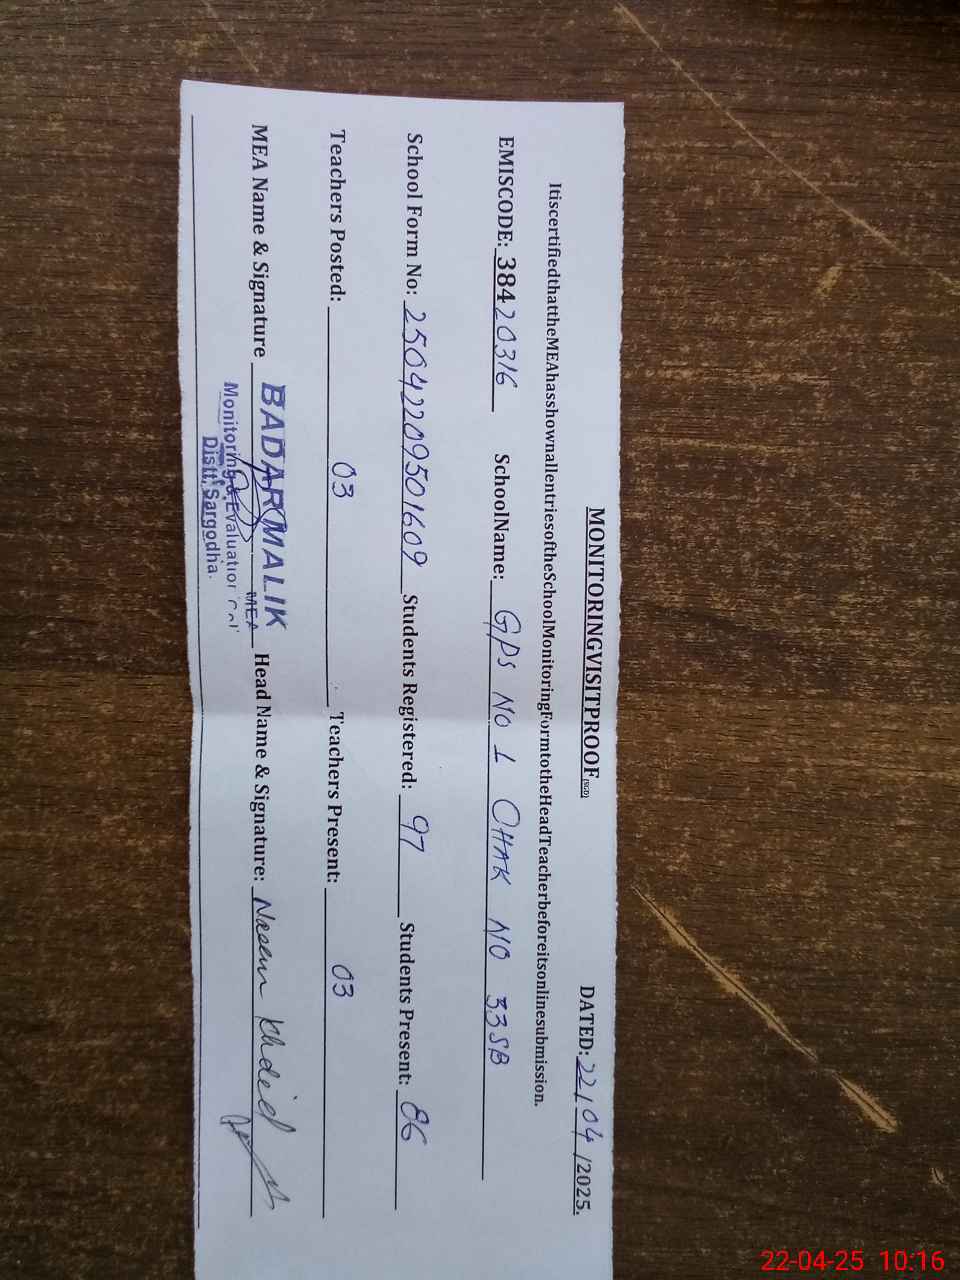 MONITORINGVISITPROOF(SGD)
DATED: 22/04/2025.
ItiscertifiedthattheMEAhasshownallentriesoftheSchoolMonitoringFormtotheHeadTeacherbeforeitsonlinesubmission.
EMISCODE: 38420316 SchoolName: GPS NO 1 CHAK NO 33SB
School Form No: 2504220950 1609 Students Registered: 97 Students Present: 86
Teachers Posted: 03 Teachers Present: 03
MEA Name & Signature BADAR MALIK MEA Head Name & Signature: Naseem
Monitoring & Evaluation
Distt. Sargodha.
22-04-25 10:16